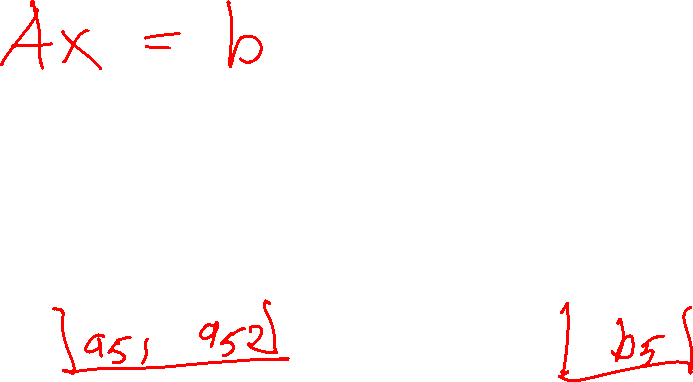 Ax = b
[a51 a52] [b5]